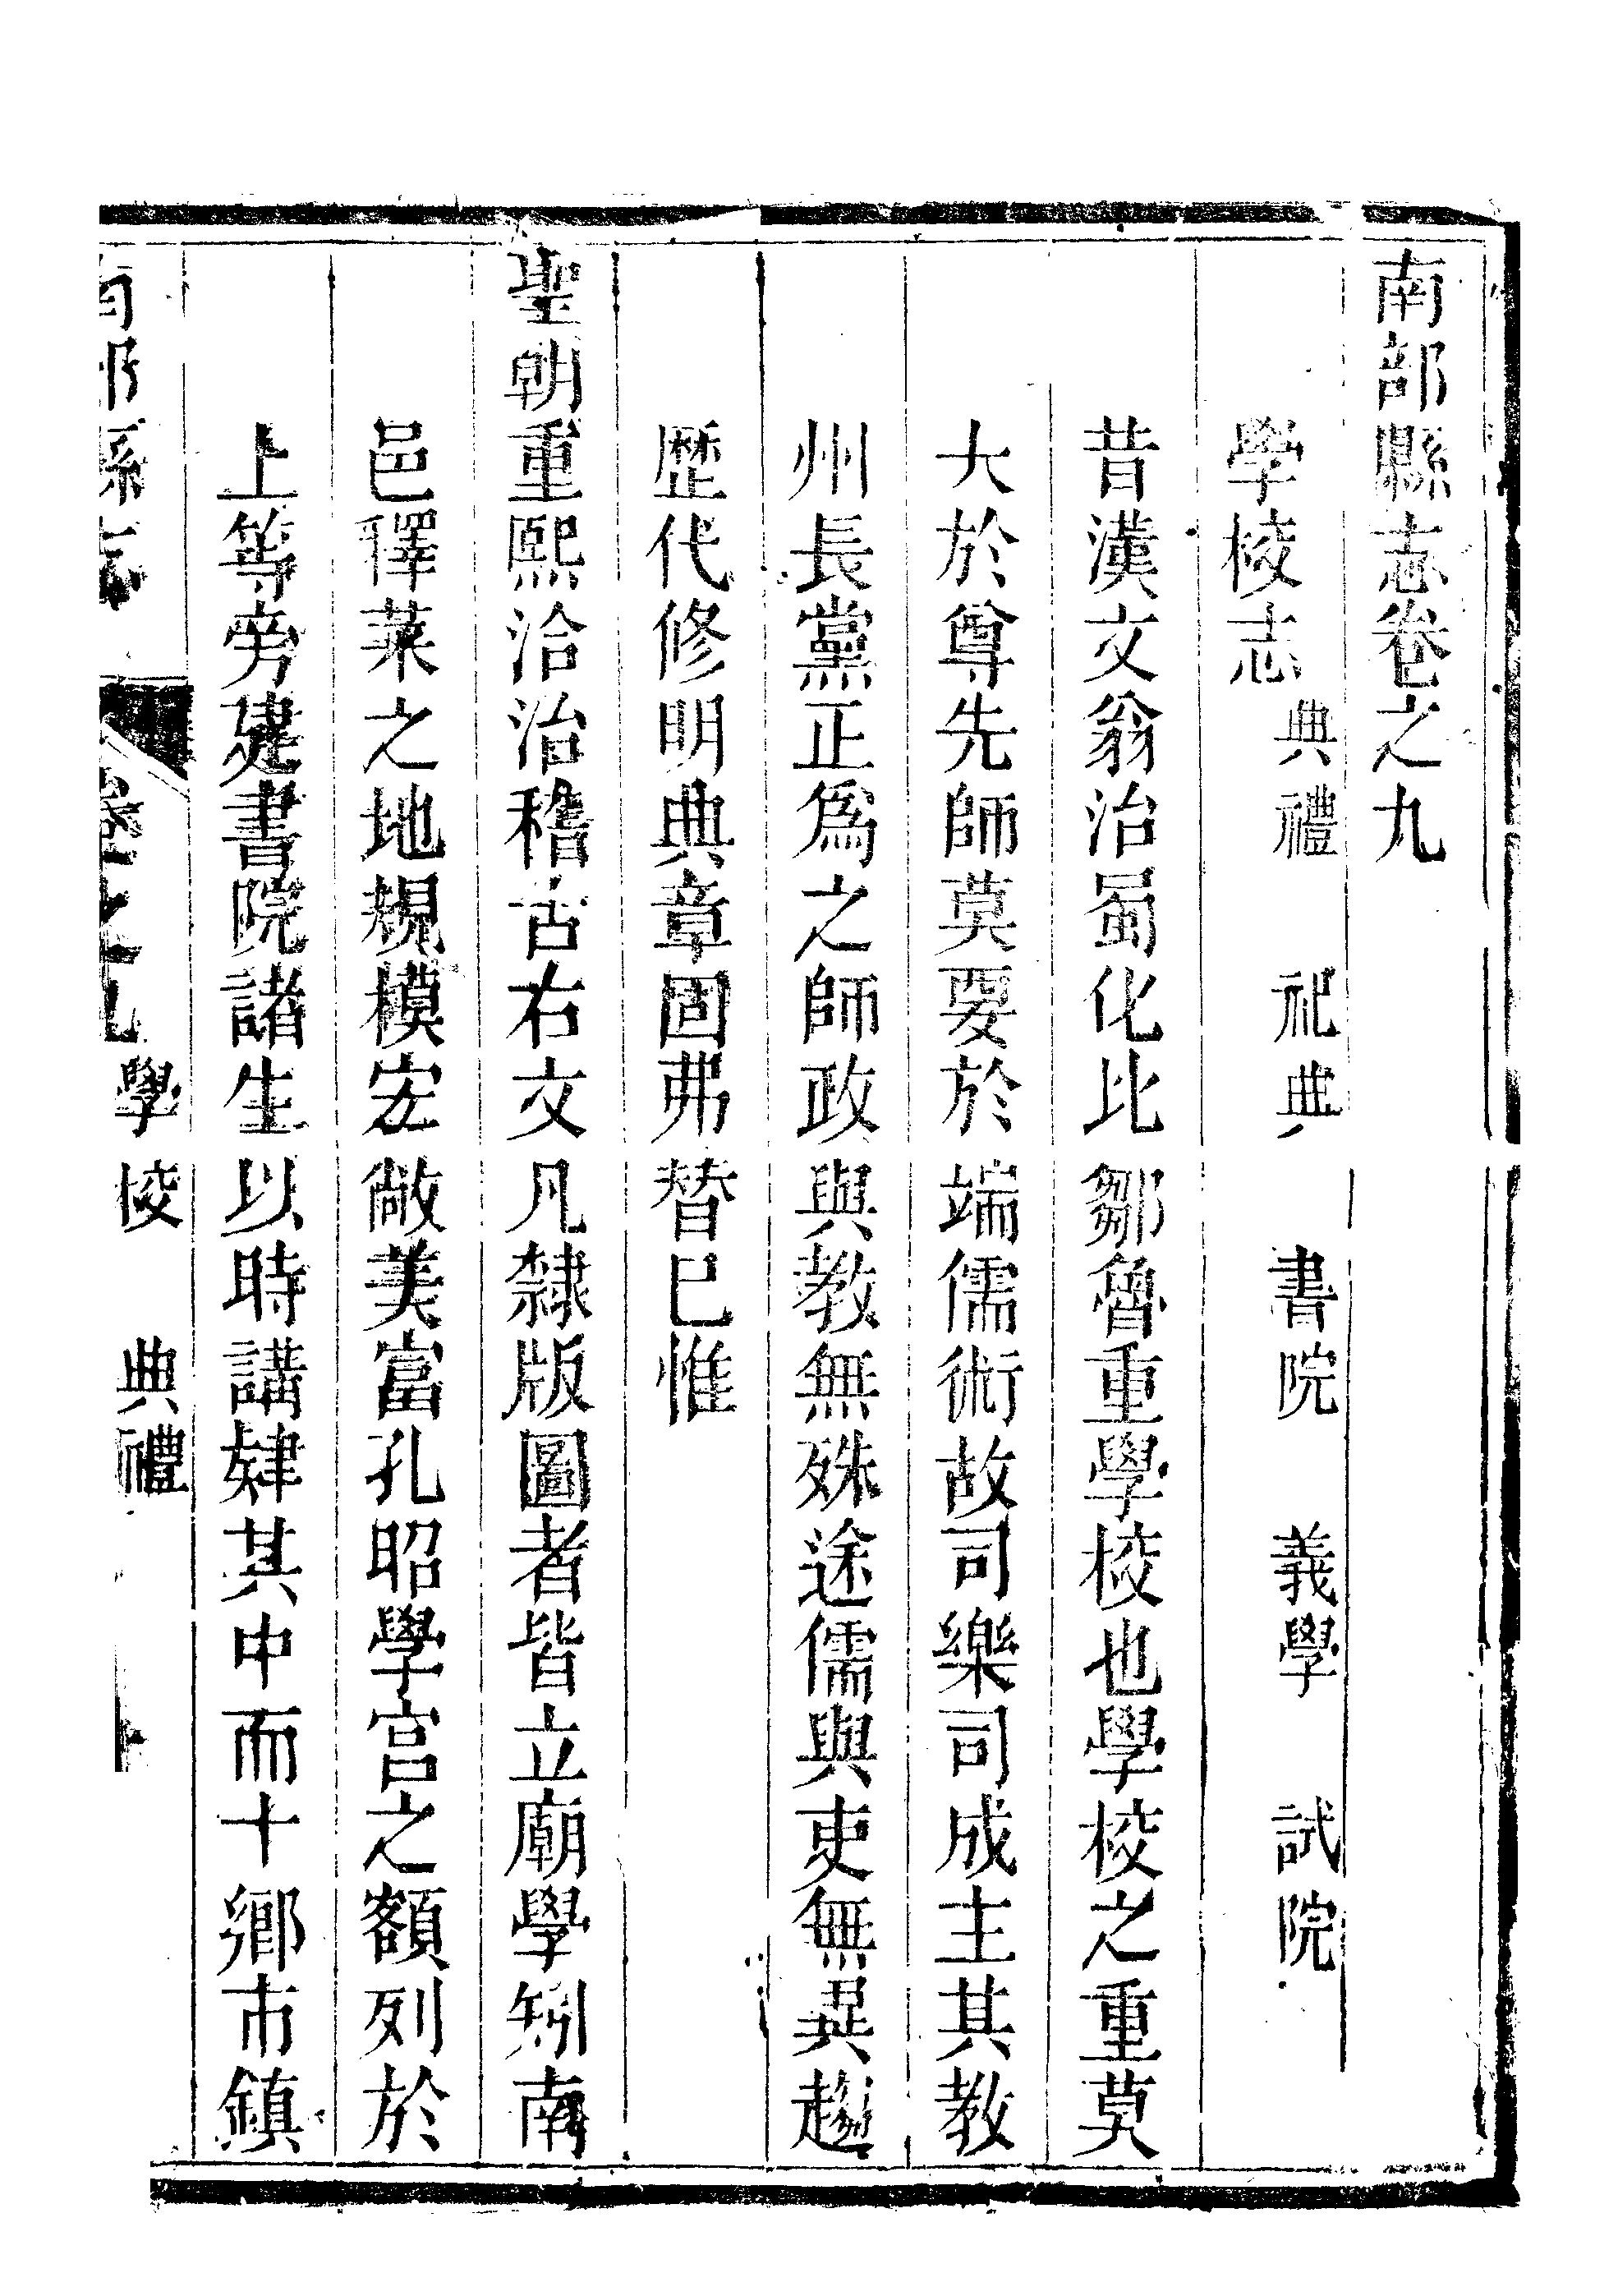 南部縣志卷之九
學校志　典禮　祀典　書院　義學　試院
昔漢文翁治蜀化比鄒魯重學校也學校之重莫
大於尊先師莫要於端儒術故司樂司成主其教
州長黨正爲之師政與教無殊途儒與吏無異趨
歷代修明典章固弗替已惟
聖朝重熙洽治稽古右文凡隸版圖者皆立廟學矧南
邑釋菜之地規模宏敞美富孔昭學宮之額列於
上等旁建書院諸生以時講肄其中而十鄉市鎮
南部縣志　卷之九　學校　典禮